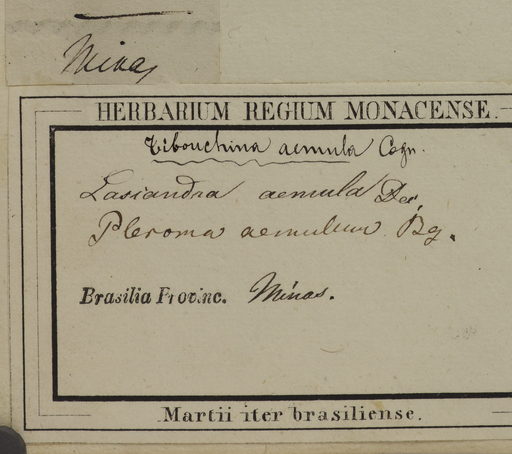 Minas
HERBARIUM REGIUM MONACENSE.
Tibouchina aemula Cogn.
Lasiandra aemula Dec.
Pleroma aemulum Bg.
Brasilia Provinc. Minas.
Martii iter brasiliense.